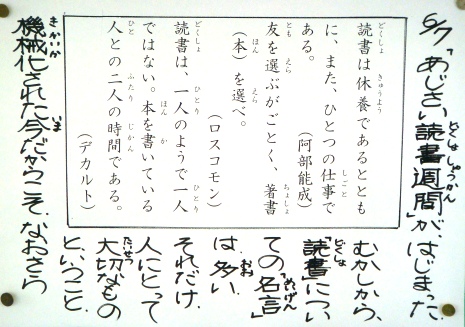 6/7「あじさい読書週間」が、はじまった。
読書は休養であるととも
に、また、ひとつの仕事で
ある。
(阿部能成)
友を選ぶがごとく、著書
(本)を選べ。
(ロスコモン)
読書は、一人のようで一人
ではない。本を書いている
人との二人の時間である。
(デカルト)
むかしから、
「読書」につい
ての「名言」
は、多い。
それだけ、
人にとって
大切なもの
ということ。
機械化された今だからこそ、なおさら